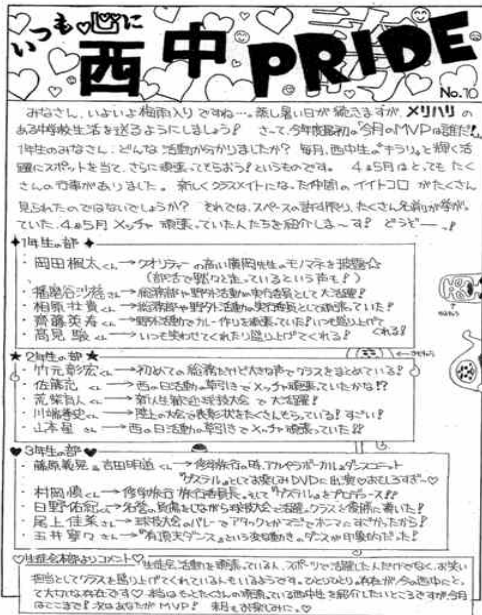 いつも心に
西中PRIDE
No.10
みなさん、いよいよ梅雨入りですね…。蒸し暑い日が続きますが、メリハリの
ある中学校生活を送るようにしましょう! さて、今年度最初の"今月のMVPは誰だ!"
1年生のみなさん、どんな活動か分かりましたか? 毎月、西中生の"キラリ"と輝く活
躍にスポットを当て、さらに頑張ってもらおう!というものです。 4&5月はとってもたく
さんの行事がありました。 新しくクラスメイトになった仲間のイイトコロがたくさん
見られたのではないでしょうか? それでは、スペースの許す限り、たくさん名前が挙がっ
ていた、4&5月メッチャ頑張っていた人たちを紹介しま〜す! どうぞー!
✦1年生の部✦
・岡田楓太くん→クオリティーの高い廣岡先生のモノマネを披露☆
(部活で黙々と走っているという声も!)
・播磨谷沙禧さん→総務部や野外活動の実行委員として大活躍!
・相原壮貴くん→総務部や野外活動の実行委員として頑張っていた!
・齊藤英寿くん→野外活動でカレー作りを頑張っていた!いつも盛り上げて
くれる!
・髙見駿くん→いつも笑わせてくれたり盛り上げてくれる!
★2年生の部★
・竹元彰宏くん→初めての総務だけど大きな声でクラスをまとめている!
・佐藤 さん→西の日活動の草引きでメッチャ頑張っていたかな!?
・荒柴 人くん→新入生歓迎球技大会で大活躍!
・川端 史くん→陸上の大会で表彰状をたくさんもらっている!すごい!
・山本星 さん→西の日活動の草引きでメッチャ頑張っていた!!
♥3年生の部♥
・藤原義晃&吉田明道くん→修学旅行の時、アカペラボーカル&ダンスユニット
"ゲスデル"としてお楽しみDVDに出演♡おもしろすぎ〜♡
・村岡慎くん→修学旅行 旅行委員長、そして"ゲスデル"をプロデュース!!
・日野佑 くん→名誉の負傷をしながら球技大会で活躍→クラスを優勝に導いた!
・尾上佳菜さん→球技大会のバレーでアタックがマジでホンマにすごかったから!
・五井寧々さん→"有頂天ダンス"という変な動きのダンスが印象的だった!
♡生徒会本部よりコメント♡ 生徒会活動を頑張っている人、スポーツで活躍した人だけでなく、お笑い
担当としてクラスを盛り上げてくれている人もいるようです。ひとりひとりの存在が今の西中にとっ
て大切な存在です♡ 本当はもっとたくさんの頑張っている西中生を紹介したいところですが今月
はここまで! 次はあなたがMVP! 来月もお楽しみに。♡